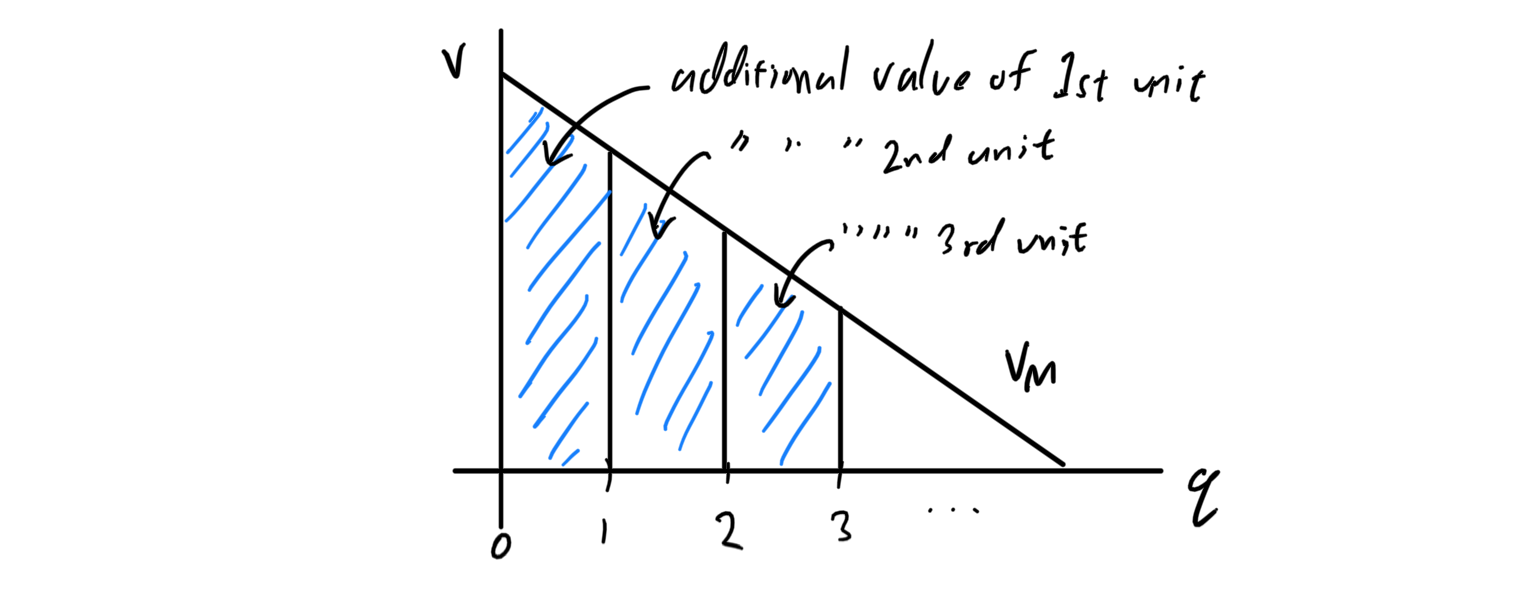 V
additional value of 1st unit
" " " 2nd unit
" " " " 3rd unit
VM
q
0 1 2 3 ...